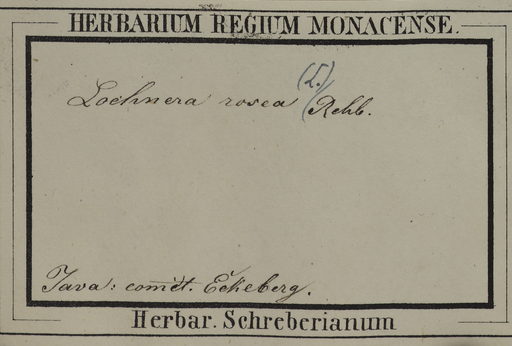 HERBARIUM REGIUM MONACENSE.
Lochnera rosea (L.) Rchb.
Java: com̄et. Eckeberg.
Herbar. Schreberianum